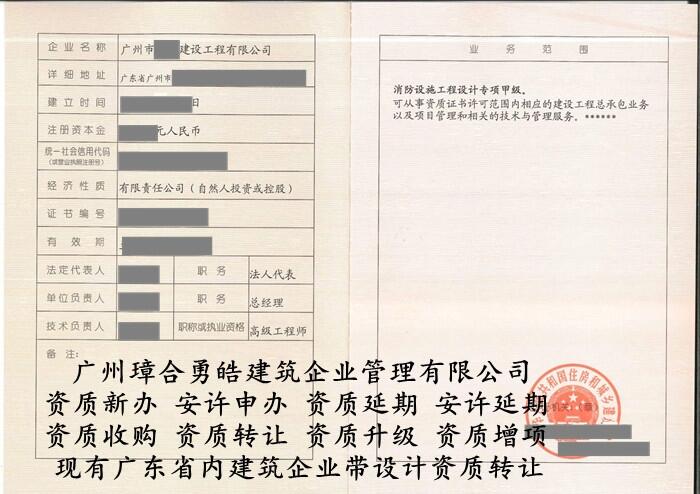 企业名称 广州市 建设工程有限公司
详细地址 广东省广州市
建立时间 日
注册资本金 元人民币
统一社会信用代码
(或营业执照注册号)
经济性质 有限责任公司(自然人投资或控股)
证书编号
有效期
法定代表人 职务 法人代表
单位负责人 职务 总经理
技术负责人 职称或执业资格 高级工程师
备注:
业务范围
消防设施工程设计专项甲级。
可从事资质证书许可范围内相应的建设工程总承包业务
以及项目管理和相关的技术与管理服务。******
共和国住房和城乡建
机关:(章)
广州璋合勇皓建筑企业管理有限公司
资质新办 安许申办 资质延期 安许延期
资质收购 资质转让 资质升级 资质增项
现有广东省内建筑企业带设计资质转让